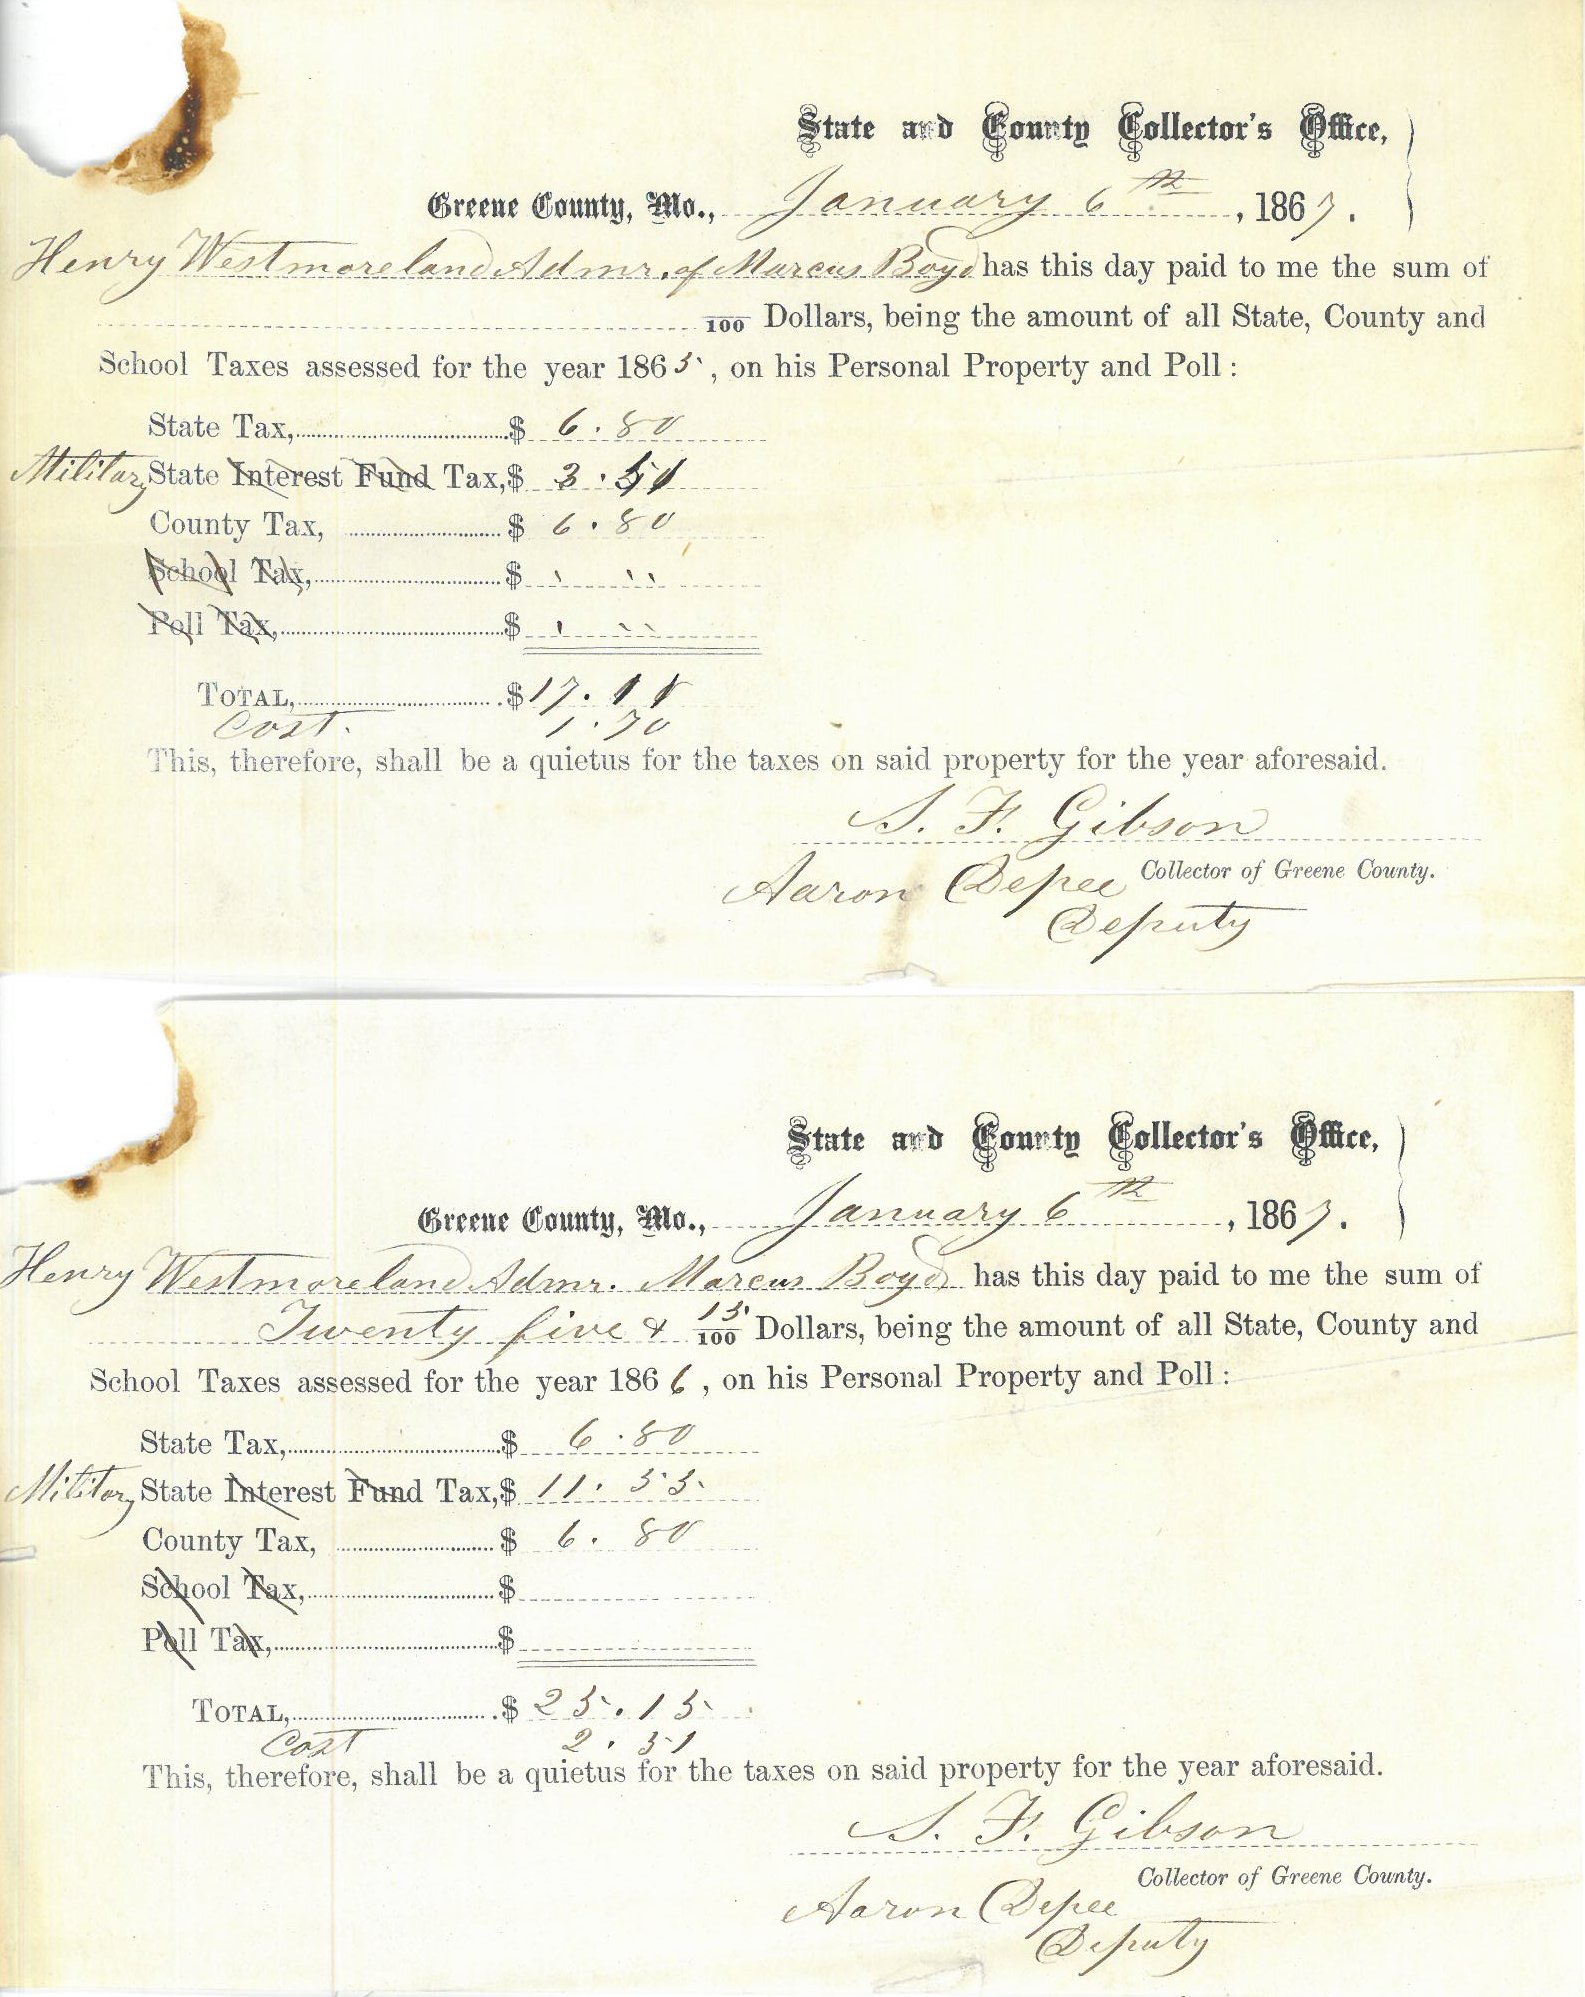 State and County Collector's Office,
Greene County, Mo., January 6th, 1867.
Henry Westmoreland Admr. of Marcus Boyd has this day paid to me the sum of
/100 Dollars, being the amount of all State, County and
School Taxes assessed for the year 1865, on his Personal Property and Poll:
State Tax, $ 6.80
Military State Interest Fund Tax, $ 3.51
County Tax, $ 6.80
School Tax, $ " "
Poll Tax, $ " "
TOTAL, $ 17.11
Cost. 1.70
This, therefore, shall be a quietus for the taxes on said property for the year aforesaid.
S. F. Gibson
Collector of Greene County.
Aaron Depee
Deputy
State and County Collector's Office,
Greene County, Mo., January 6th, 1867.
Henry Westmoreland Admr. Marcus Boyd has this day paid to me the sum of
Twenty five & 15/100 Dollars, being the amount of all State, County and
School Taxes assessed for the year 1866, on his Personal Property and Poll:
State Tax, $ 6.80
Military State Interest Fund Tax, $ 11.55
County Tax, $ 6.80
School Tax, $
Poll Tax, $
TOTAL, $ 25.15
Cost 2.51
This, therefore, shall be a quietus for the taxes on said property for the year aforesaid.
S. F. Gibson
Collector of Greene County.
Aaron Depee
Deputy